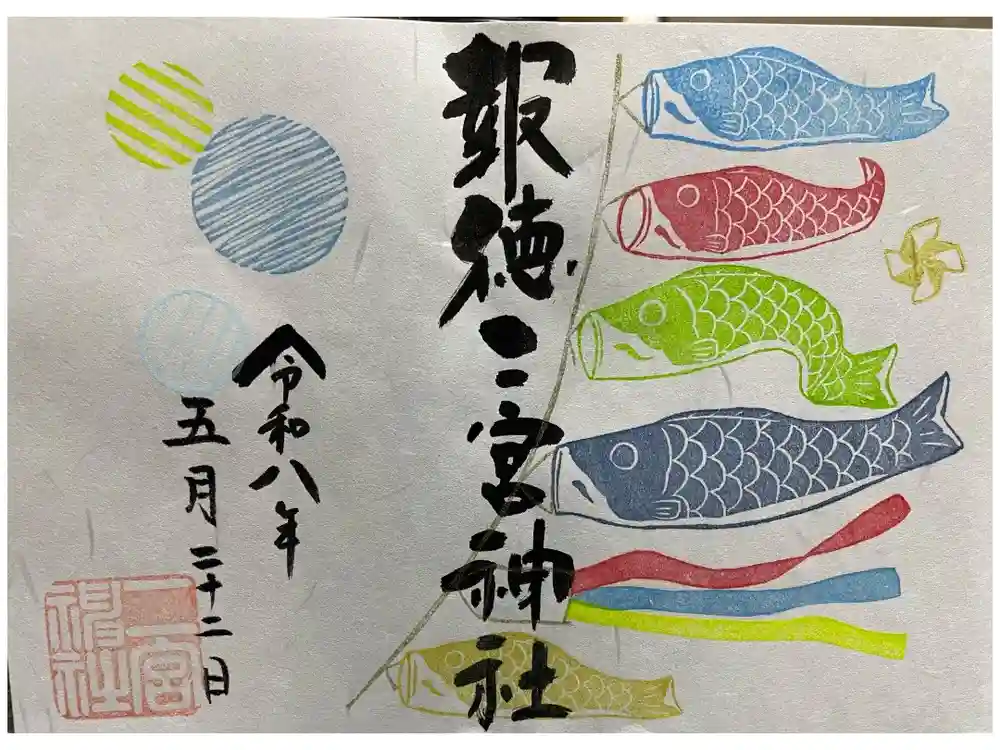 報徳二宮神社
令和八年
五月二十二日
二宮神社